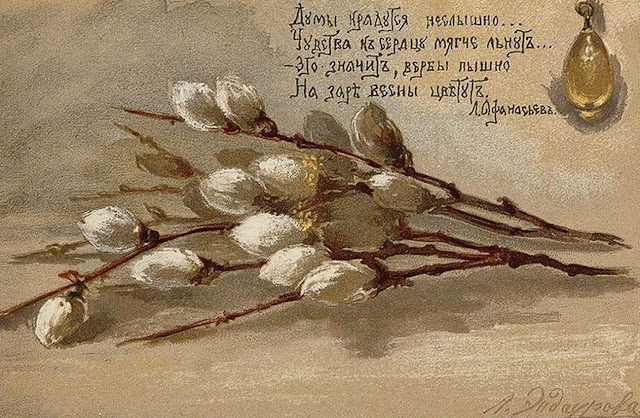 Думы крадутся неслышно...
Чувства къ сердцу мягче льнутъ...
— Это значитъ, вербы пышно
На зарѣ весны цвѣтутъ.
Л. Афанасьевъ.